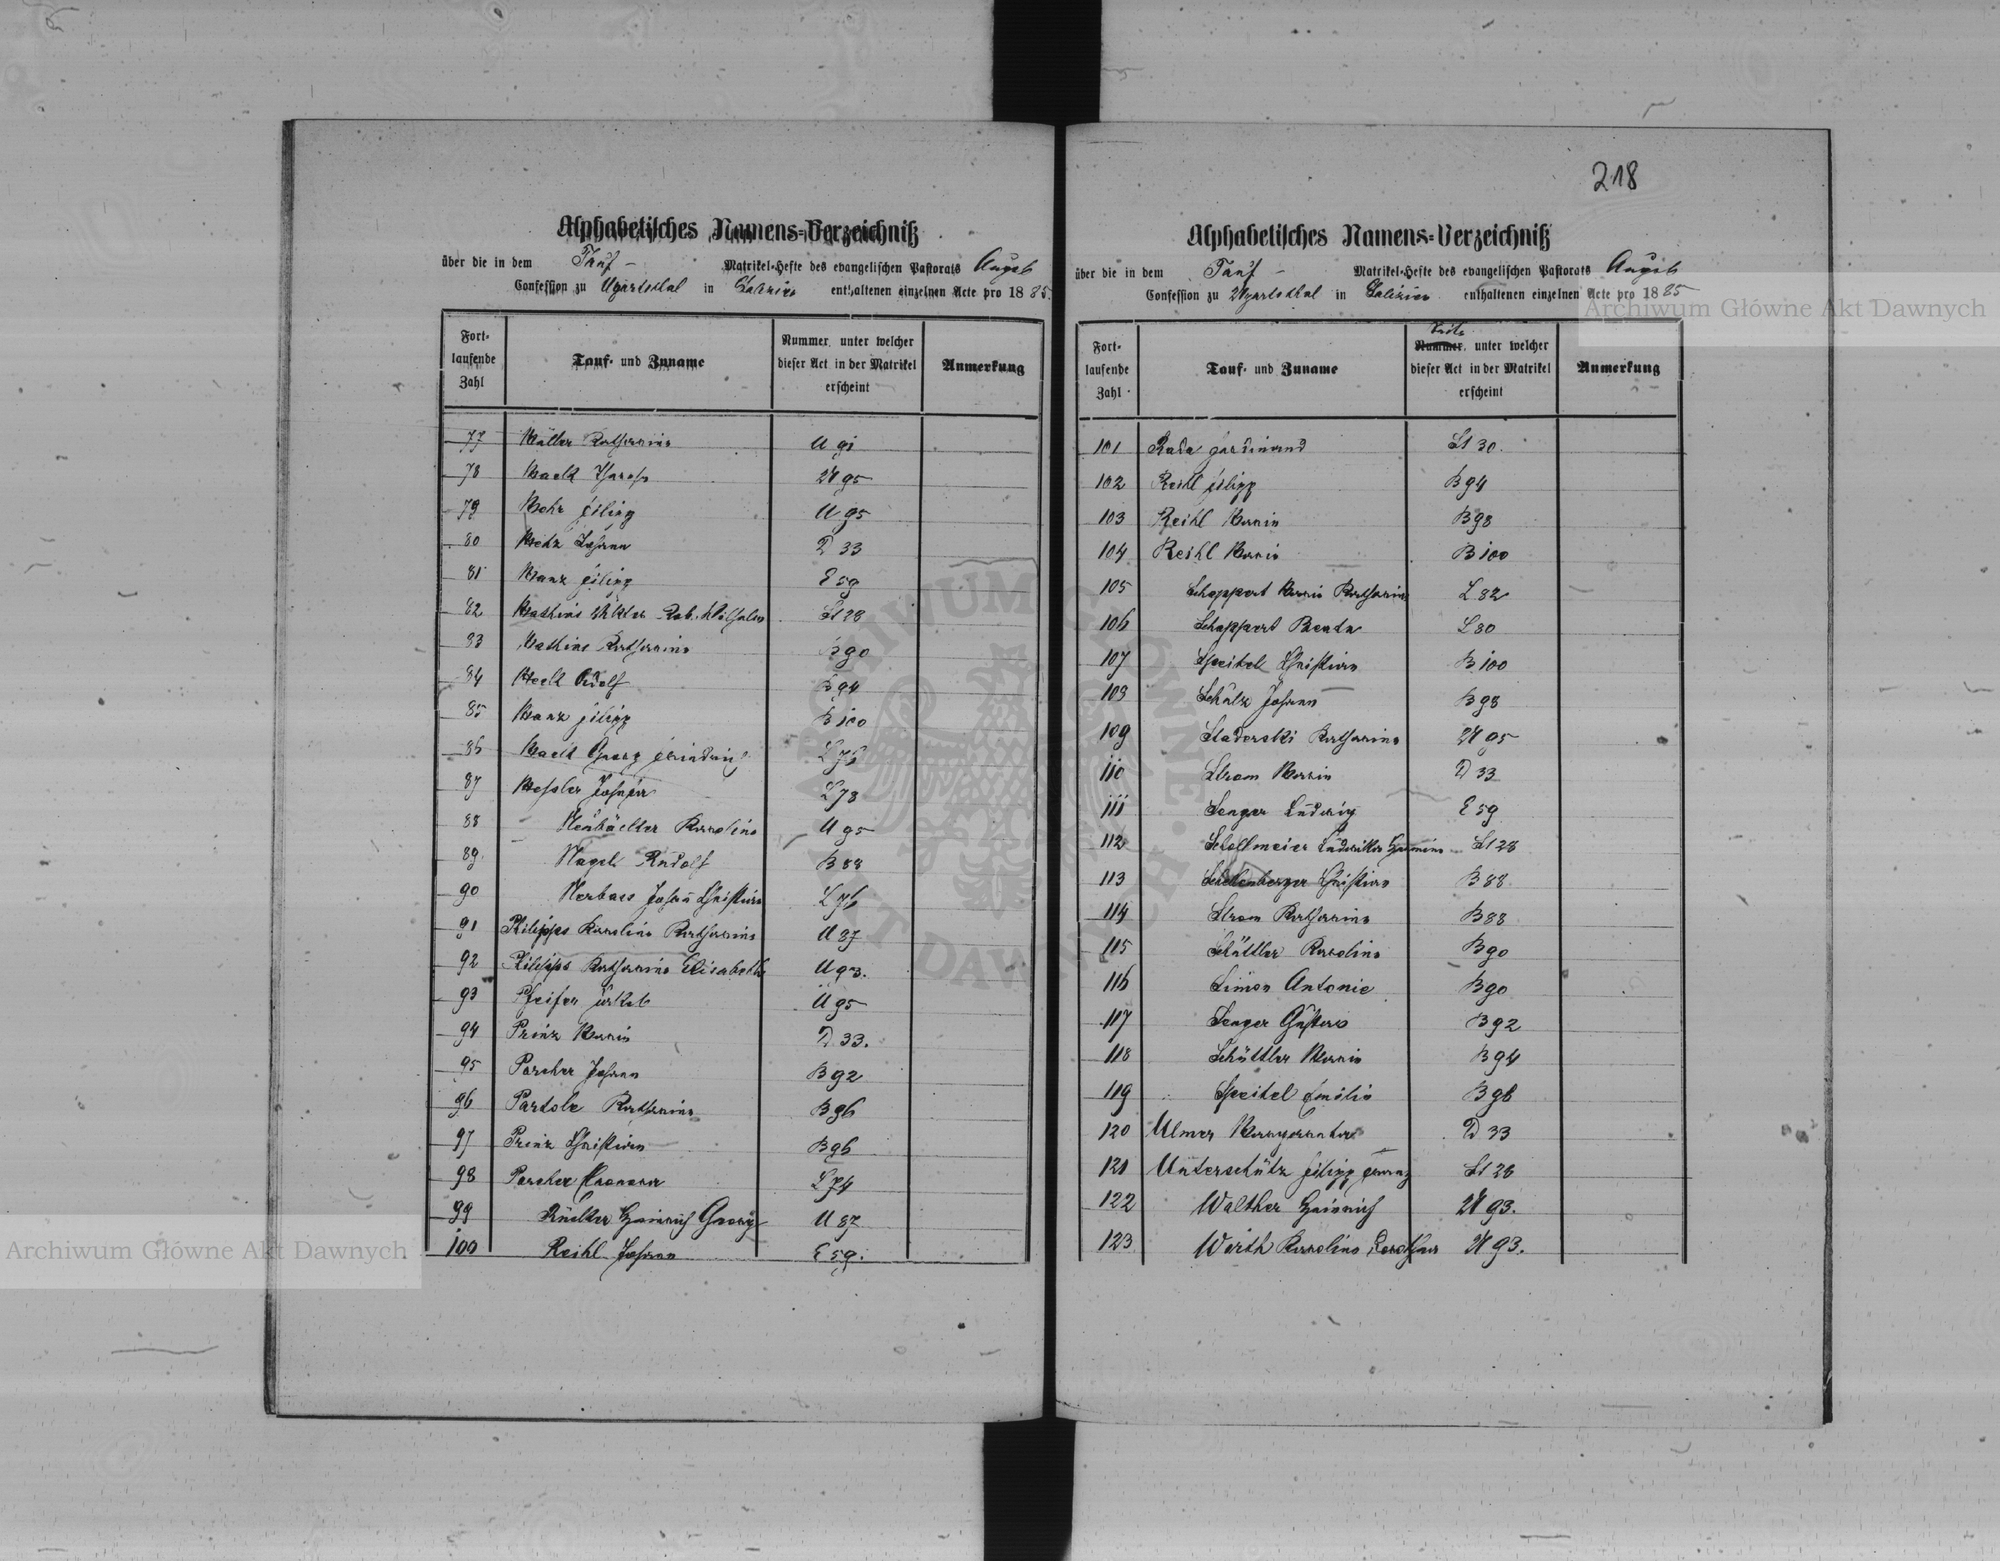 218
Alphabetisches Namens-Verzeichniß
über die in dem Tauf- Matrikel-Hefte des evangelischen Pastorats Augsb
Confession zu Ugartsthal in Galizien enthaltenen einzelnen Acte pro 1885.
Fort-laufende Zahl
Tauf- und Zuname
Nummer, unter welcher dieser Act in der Matrikel erscheint
Anmerkung
77 Müller Katharina U 91
78 Mack U 95
79 Mohr Filipp U 95
80 Metz Johann D 33
81 Manz Filipp E 59
82 Mathias Viktor Rob. Wilhelm 28
83 Mathias Katharina B 90
84 Meck Adolf B 94
85 Manz Filipp B 100
86 Mack Georg Friedrich L 76
87 Messler L 78
88 Karolina U 95
89. Nagel Rudolf B 88
90 Nerbas Johann Christian L 76
91 Philipps Karolina Katharina U 87
92 Philipps Katharina Elisabeth U 93.
93 Pfeifer Jakob U 95
94 Prinz Maria D 33.
95 Porcher Johann B 92
96 Katharina B 96
97 Prinz Christian B 96
98 Porcher Eleonora L 74
99 Heinrich Georg U 87
100 Reihl Johann E 59.
Alphabetisches Namens-Verzeichniß
über die in dem Tauf- Matrikel-Hefte des evangelischen Pastorats Augsb
Confession zu Ugartsthal in Galizien enthaltenen einzelnen Acte pro 1885
Fort-laufende Zahl
Tauf- und Zuname
Seite
Nummer, unter welcher dieser Act in der Matrikel erscheint
Anmerkung
101 Rada Ferdinand 30.
102 Reihl Filipp B 94
103 Reihl Maria B 98
104 Reihl Maria B 100
105 Schappert Maria Katharina L 82
106 Schappert Beata L 80
107 Speitel Christian B 100
108 Schulz Johann B 98
109 Sladerski Katharina U 95
110 Strom Maria D 33
111 Senger Ludwig E 59
112 28
113 Schellenberger Christian B 88.
114 Strom Katharina B 88
115 Schüttler Karolina B 90
116 Simon Antonie B 90
117 Senger Gustav B 92
118 Schüttler Maria B 94
119 Speitel Emilia B 96
120 Ulmer Margaretha D 33
121 Unterschütz Filipp Franz 28
122 Walther Heinrich U 93.
123 Wirth Karolina U 93.
Archiwum Główne Akt Dawnych
Archiwum Główne Akt Dawnych
ARCHIWUM GŁÓWNE AKT DAWNYCH